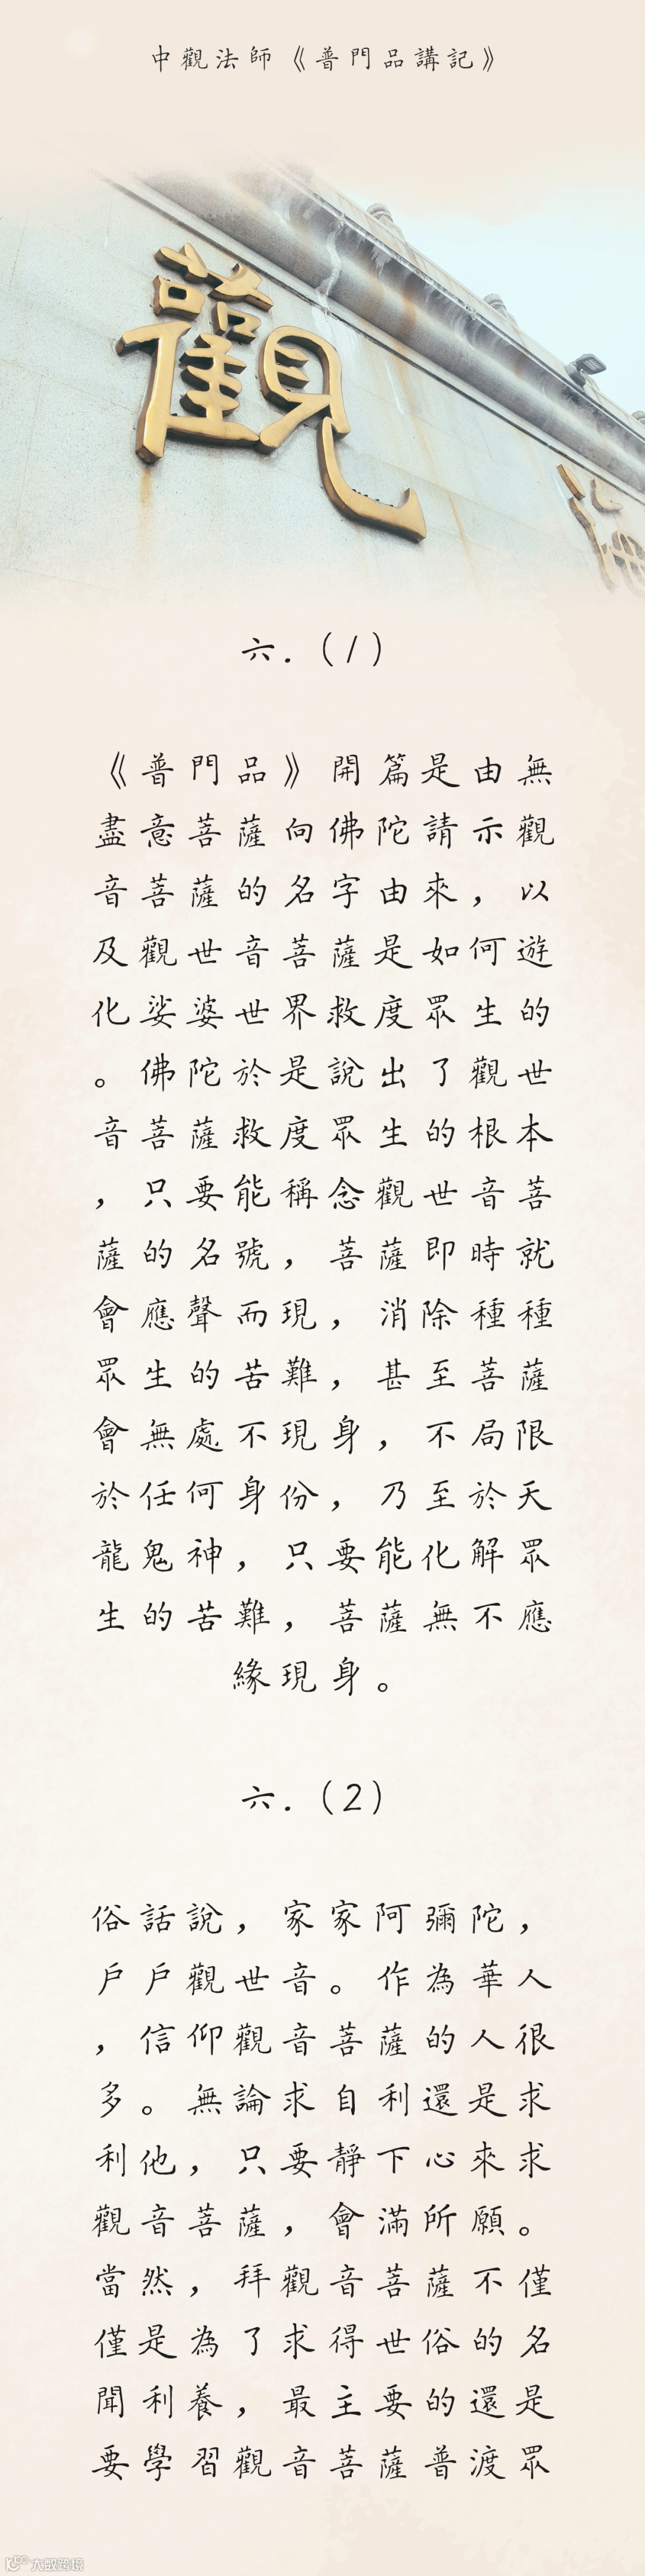 中觀法師《普門品講記》
觀
海
六.(1)
《普門品》開篇是由無
盡意菩薩向佛陀請示觀
音菩薩的名字由來，以
及觀世音菩薩是如何遊
化娑婆世界救度眾生的
。佛陀於是說出了觀世
音菩薩救度眾生的根本
，只要能稱念觀世音菩
薩的名號，菩薩即時就
會應聲而現，消除種種
眾生的苦難，甚至菩薩
會無處不現身，不局限
於任何身份，乃至於天
龍鬼神，只要能化解眾
生的苦難，菩薩無不應
緣現身。
六.(2)
俗話說，家家阿彌陀，
戶戶觀世音。作為華人
，信仰觀音菩薩的人很
多。無論求自利還是求
利他，只要靜下心來求
觀音菩薩，會滿所願。
當然，拜觀音菩薩不僅
僅是為了求得世俗的名
聞利養，最主要的還是
要學習觀音菩薩普渡眾
大數跨境